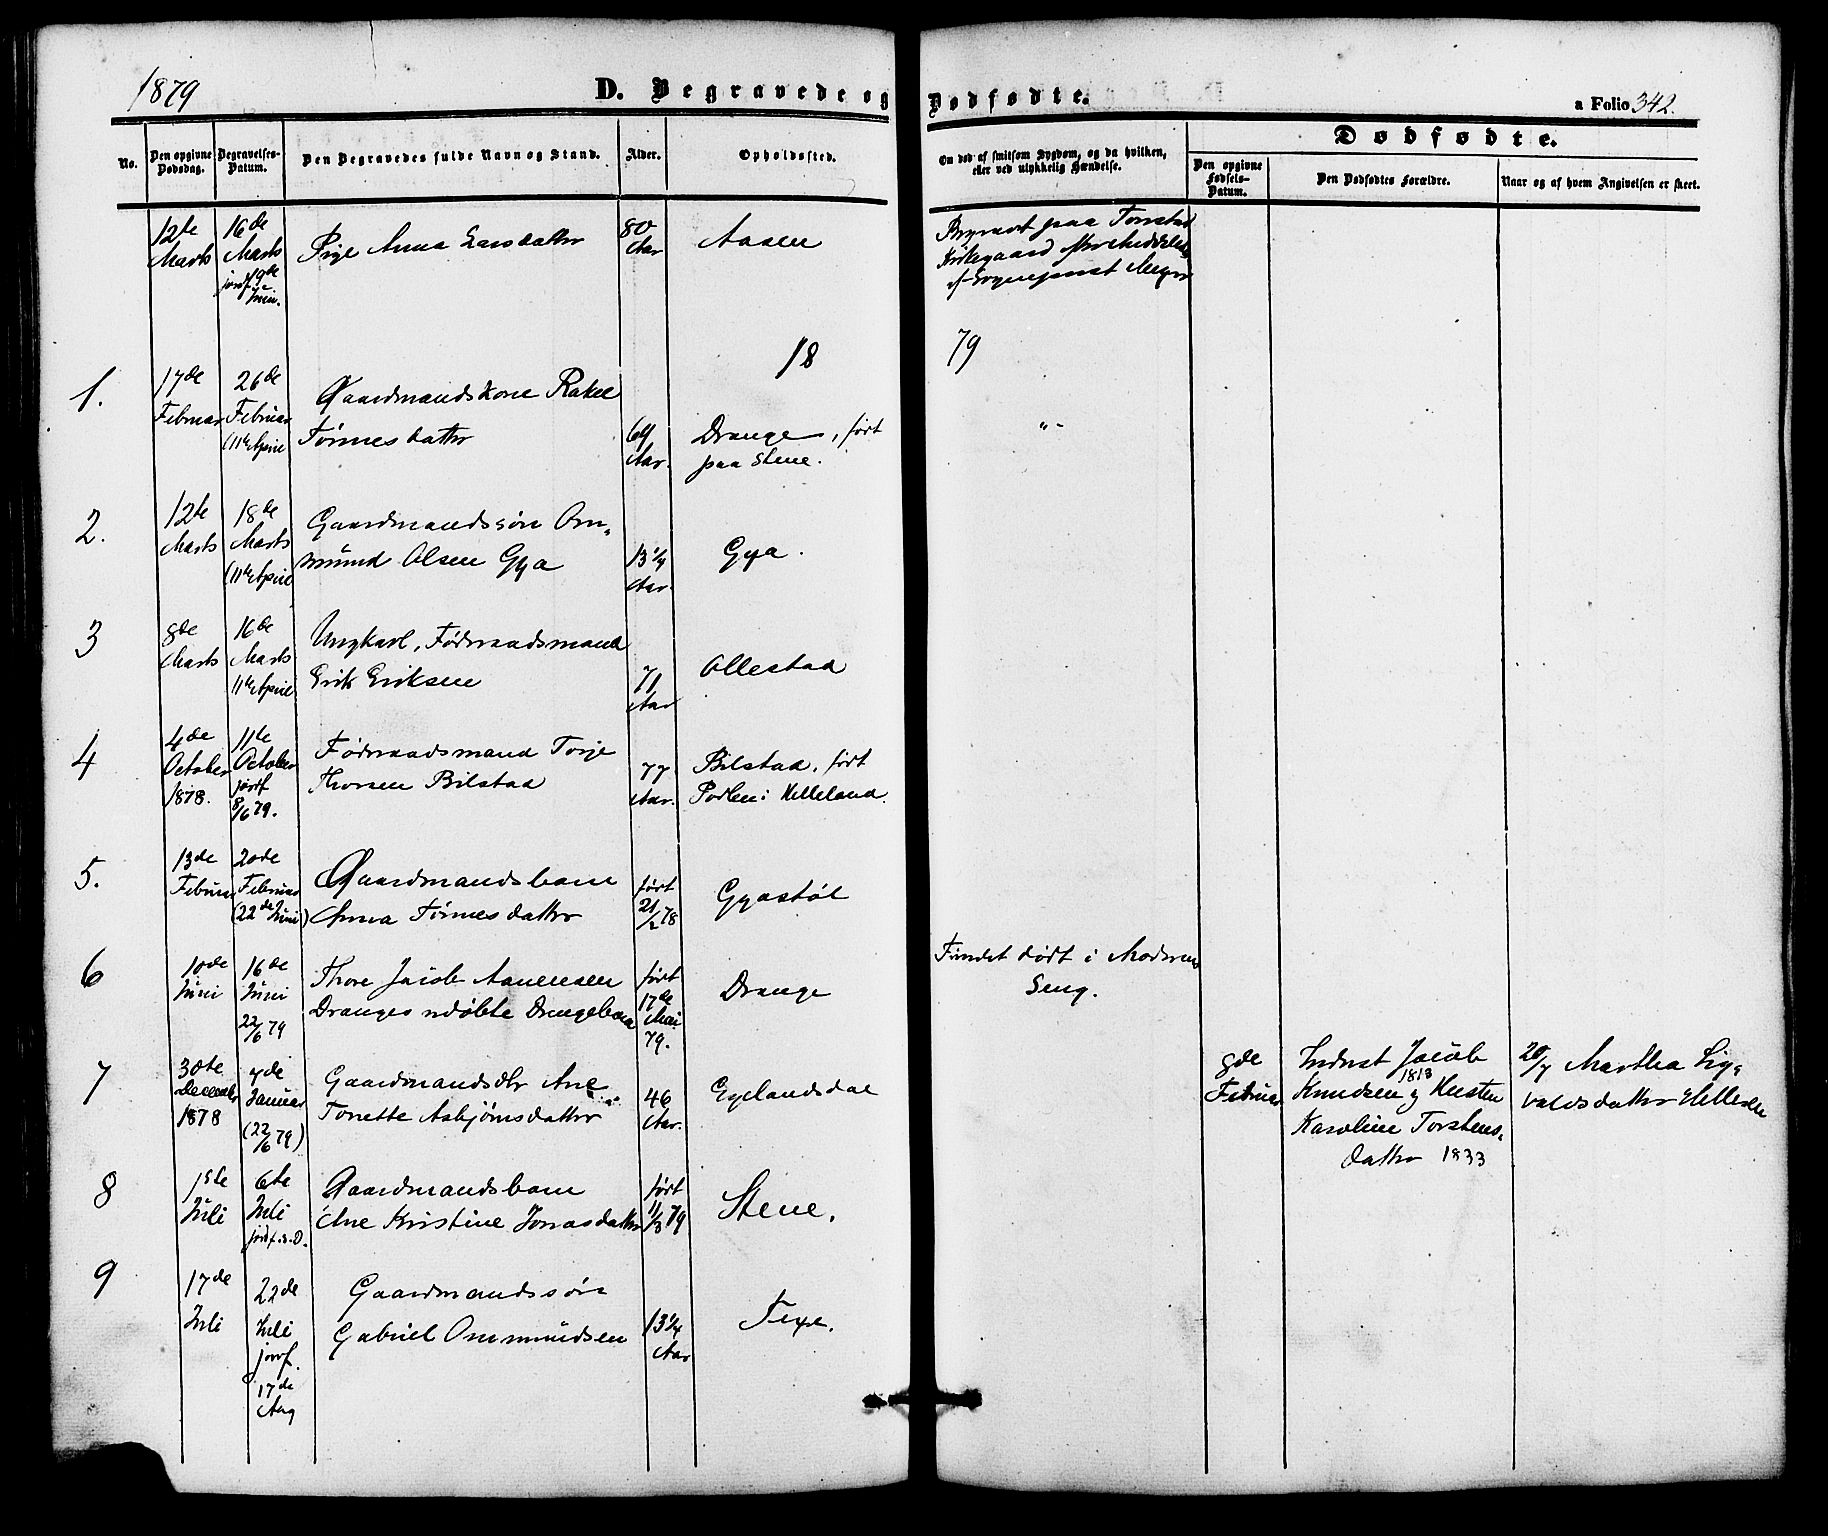 1879
D. Begravede og Dødfødte.
a Folio 342.
No.
Den opgivne Dødsdag.
Begravelses-Datum.
Den Begravedes fulde Navn og Stand.
Alder.
Opholdssted.
Om død af smitsom Sygdom, og da hvilken,
eller ved ulykkelig Hændelse.
Dødfødte.
Den opgivne Fødsels-Datum.
Den Dødfødtes Forældre.
Naar og af hvem Angivelsen er skeet.
12te Marts
16de Marts
jordf. 19de Juni.
Pige Anna Larsdatter
80 Aar
Aasen
Begravet paa
Kirkegaard
af Sognepræst
1879
1.
17de Februar
26de Februar
(11te April
Gaardmandskone Rakel
Tønnesdatter
69 Aar.
Drange, født
paa Stene.
" -
2.
12te Marts
18de Marts
(11te April
Gaardmandssøn Om-
mund Olsen Gya
13 1/4 Aar.
Gya.
3
8de Marts
16de Marts
11te April
Ungkarl, Føderaadsmand
Erik Eriksen
71 Aar
Ollestad
4
4de October 1878.
11te October
jordf 8/6 79.
Føderaadsmand Terje
Thorsen Bilstad
77 Aar.
Bilstad, født
i Helleland.
5.
13de Februar
20de Februar
(22de Juni)
Gaardmandsbarn
Anna Tønnesdatter
født 21/2 78
Gyastøl
6
10de Juni
16de Juni
22/6 79
Thore Jacob Aanensen
Dranges udøbte Drengebarn
født 17de Mai 79.
Drange
Fundet død i Moderens
Seng.
7
30te December 1878
7de Januar
(22/6 79)
Gaardmandsdtr Ane
Tonette Asbjørnsdatter
46 Aar.
Egelandsdal
8de Februar
Inderst Jacob
Knudsen 1818 og Kusten
Karoline Torstens-
datter 1833
20/7 Martha Sig-
valdsdatter Helleren
8
1ste Juli
6te Juli
jordf. s. D.
Gaardmandsbarn
Ane Kristine Jonasdatter
født 11/3 79
Stene.
9
17de Juli
22de Juli
jordf. 17de Aug
Gaardmandssøn
Gabriel Ommundsen
13 1/4 Aar
Texe.